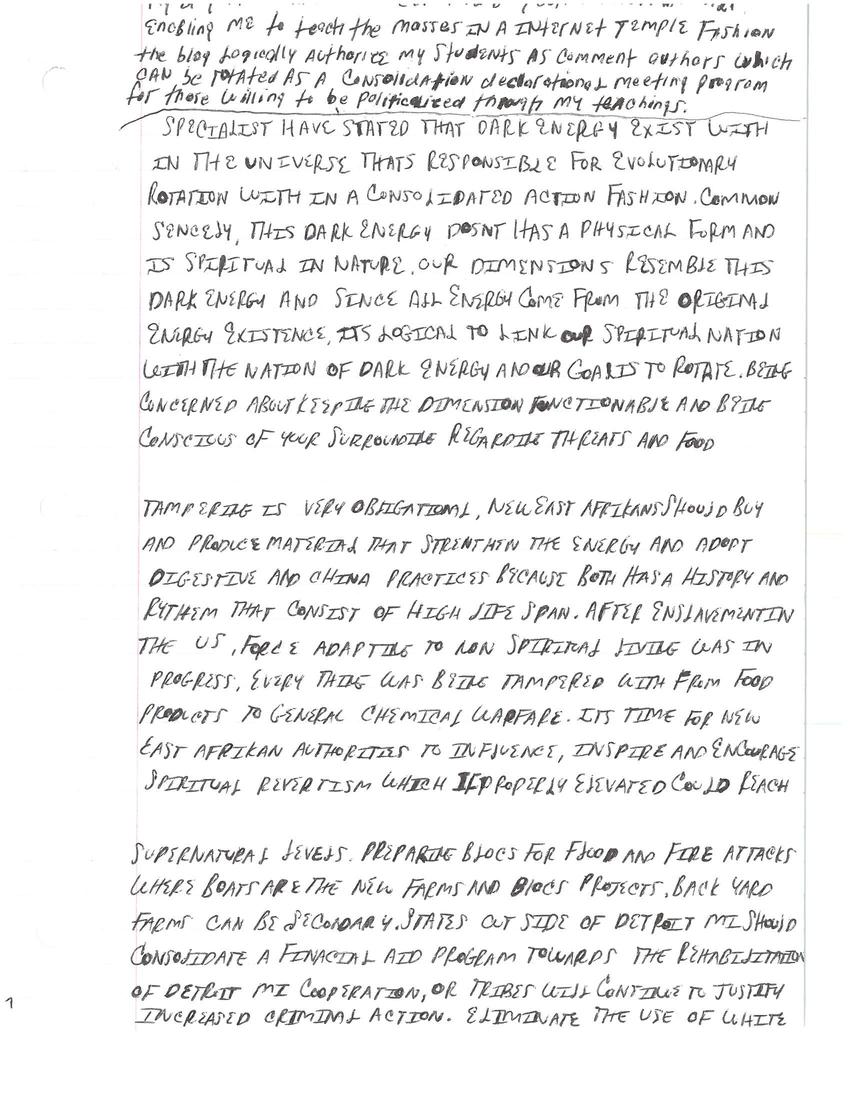 Enabling me to teach the masses in a internet temple fashion
the blog logically authorize my students as comment authors which
can be rotated as a consolidation declarational meeting program
for those willing to be politicalized through my teachings.
SPECIALIST HAVE STATED THAT DARK ENERGY EXIST WITH
IN THE UNIVERSE THATS RESPONSIBLE FOR EVOLUTIONARY
ROTATION WITH IN A CONSOLIDATED ACTION FASHION. COMMON
SENCELY, THIS DARK ENERGY DOSNT HAS A PHYSICAL FORM AND
IS SPIRITUAL IN NATURE. OUR DIMENSIONS RESEMBLE THIS
DARK ENERGY AND SINCE ALL ENERGY COME FROM THE ORIGINAL
ENERGY EXISTENCE, ITS LOGICAL TO LINK OUR SPIRITUAL NATION
WITH THE NATION OF DARK ENERGY AND OUR GOAL IS TO ROTATE. BEING
CONCERNED ABOUT KEEPING THE DIMENSION FUNCTIONABLE AND BEING
CONSCIOUS OF YOUR SURROUNDING REGARDING THREATS AND FOOD
TAMPERING IS VERY OBLIGATIONAL, NEW EAST AFRIKANS SHOULD BUY
AND PRODUCE MATERIAL THAT STRENTHEN THE ENERGY AND ADOPT
DIGESTIVE AND CHINA PRACTICES BECAUSE BOTH HAS A HISTORY AND
RYTHEM THAT CONSIST OF HIGH LIFE SPAN. AFTER ENSLAVEMENT IN
THE US, FORCE ADAPTING TO NON SPIRITUAL LIVING WAS IN
PROGRESS, EVERY THING WAS BEING TAMPERED WITH FROM FOOD
PRODUCTS TO GENERAL CHEMICAL WARFARE. ITS TIME FOR NEW
EAST AFRIKAN AUTHORITIES TO INFLUENCE, INSPIRE AND ENCOURAGE
SPIRITUAL REVERTISM WHICH IF PROPERLY ELEVATED COULD REACH
SUPERNATURAL LEVELS. PREPARING BLOCS FOR FLOOD AND FIRE ATTACKS
WHERE BOATS ARE THE NEW FARMS AND BLOCS PROJECTS, BACK YARD
FARMS CAN BE SECONDARY. STATES OUT SIDE OF DETROIT MI SHOULD
CONSOLIDATE A FINACIAL AID PROGRAM TOWARDS THE REHABILITATION
OF DETROIT MI COOPERATION, OR TRIBES WILL CONTINUE TO JUSTIFY
INCREASED CRIMINAL ACTION. ELIMINATE THE USE OF WHITE